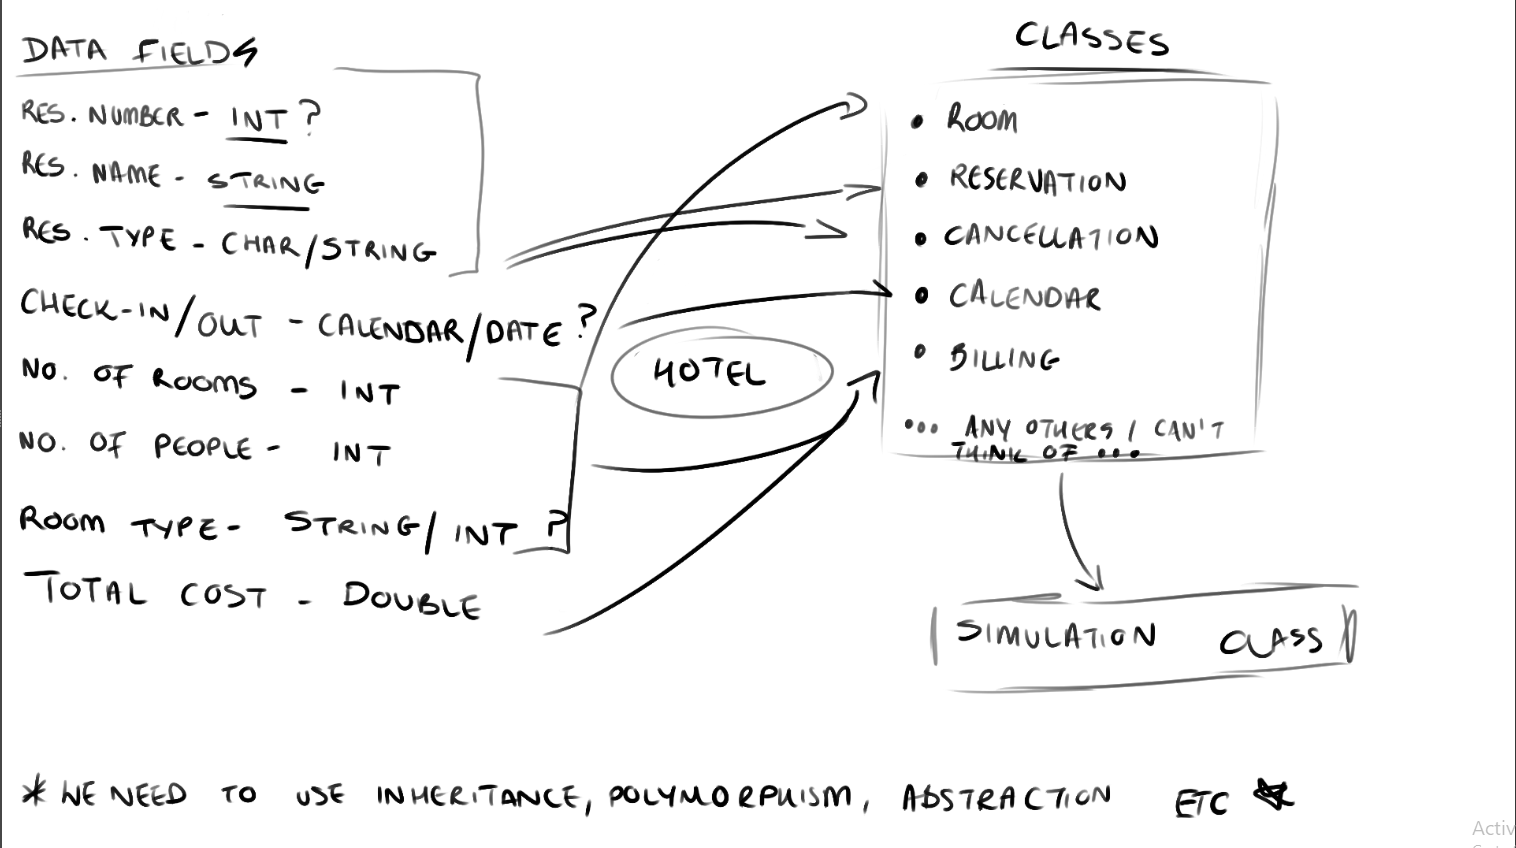 DATA FIELDS
RES. NUMBER - INT ?
RES. NAME - STRING
RES. TYPE - CHAR/STRING
CHECK-IN/OUT - CALENDAR/DATE ?
NO. OF ROOMS - INT
NO. OF PEOPLE - INT
ROOM TYPE - STRING/INT ?
TOTAL COST - DOUBLE
HOTEL
CLASSES
• ROOM
• RESERVATION
• CANCELLATION
• CALENDAR
• BILLING
... ANY OTHERS I CAN'T
THINK OF ...
SIMULATION CLASS
* WE NEED TO USE INHERITANCE, POLYMORPHISM, ABSTRACTION ETC *
Activ